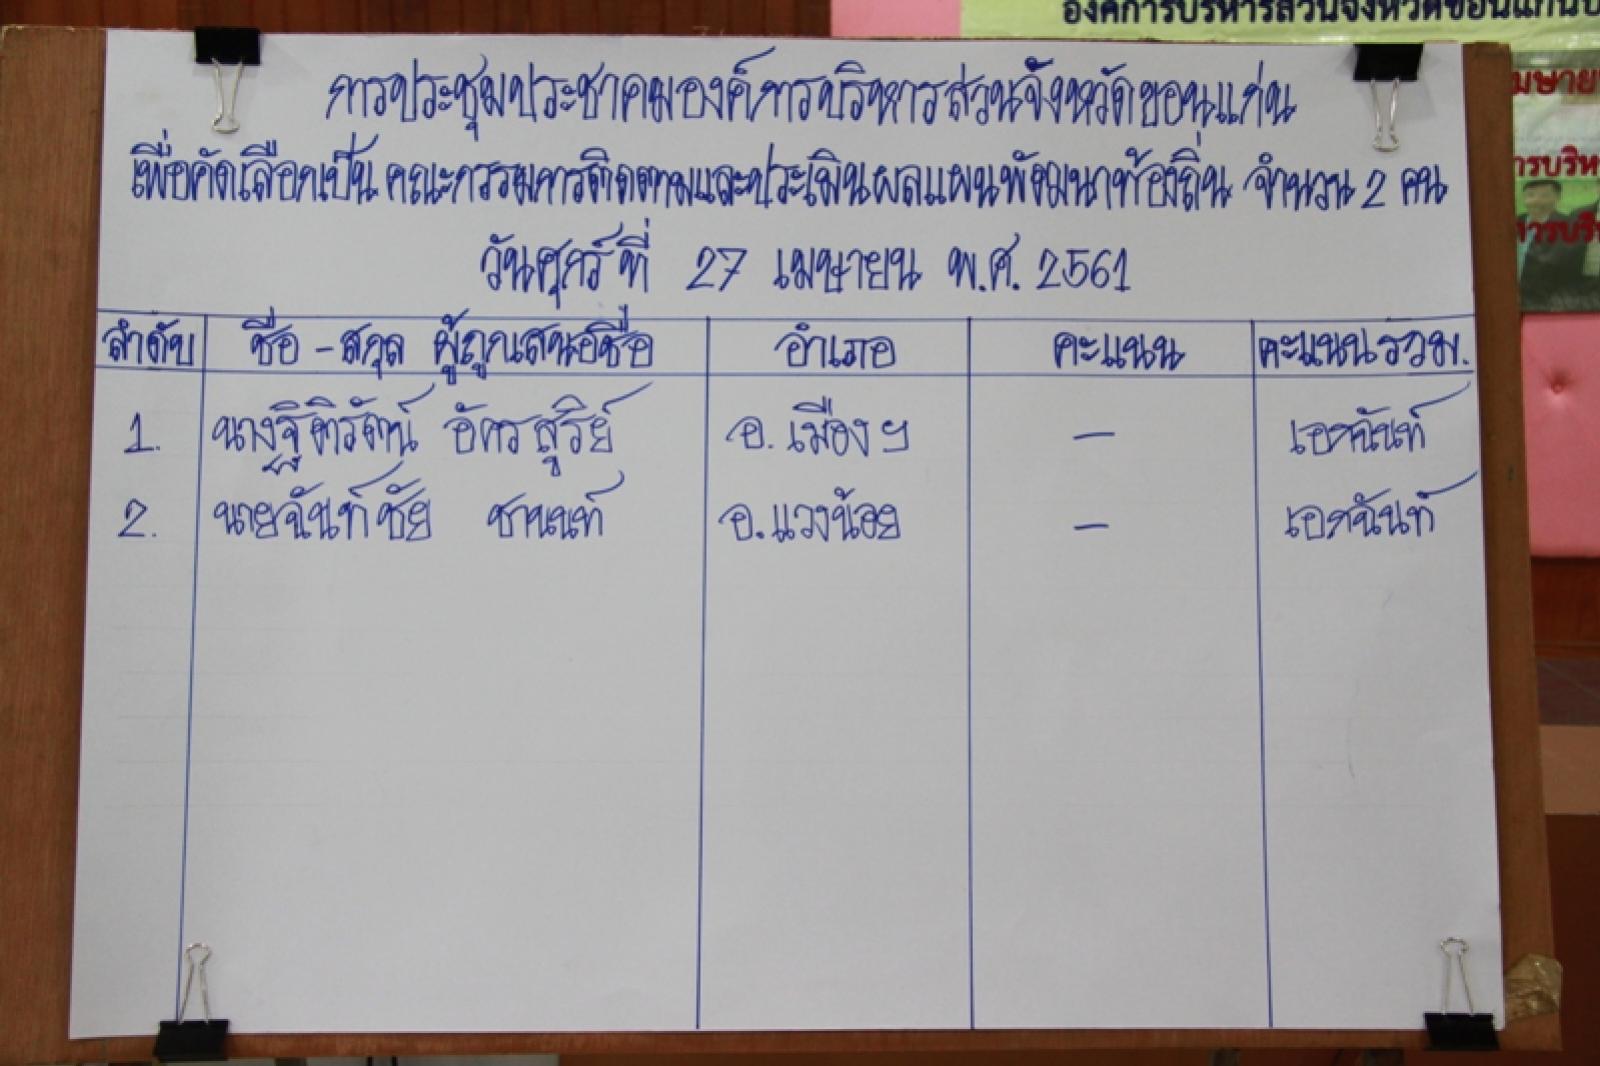 องค์การบริหารส่วนจังหวัดขอนแก่น
การประชุมประชาคมองค์การบริหารส่วนจังหวัดขอนแก่น
เพื่อคัดเลือกเป็น คณะกรรมการติดตามและประเมินผลแผนพัฒนาท้องถิ่น จำนวน 2 คน
วันศุกร์ ที่ 27 เมษายน พ.ศ. 2561
ลำดับ ชื่อ - สกุล ผู้ถูกเสนอชื่อ อำเภอ คะแนน คะแนนรวม.
1. นางฐิติรัตน์ อัครสุริย์ อ.เมืองฯ - เอกฉันท์
2. นายฉันท์ชัย ชานนท์ อ.แวงน้อย - เอกฉันท์